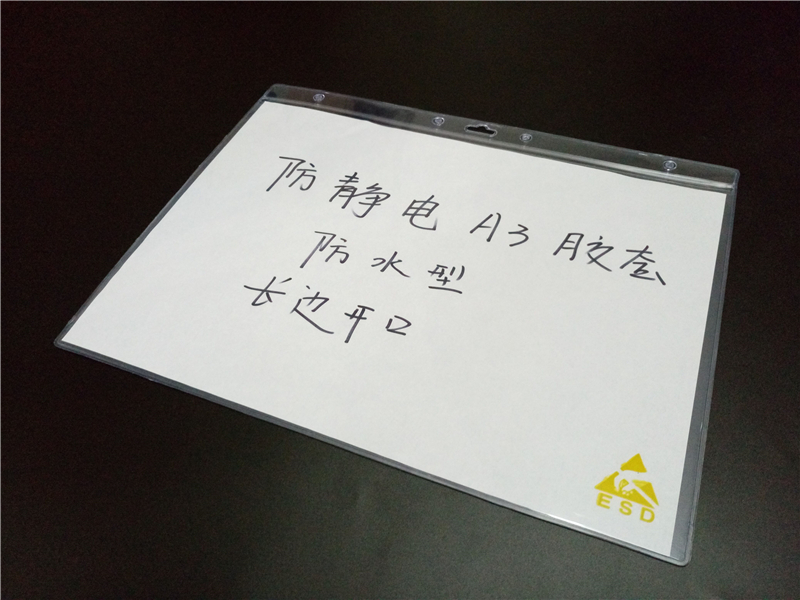 防静电 A3 胶套
防水型
长边开口
ESD